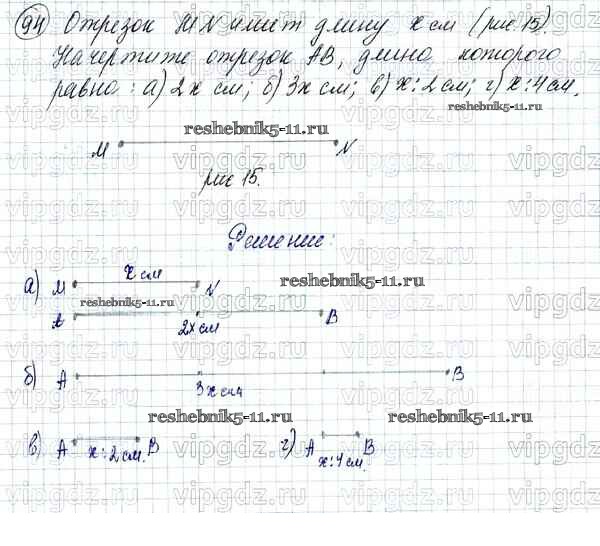 94 Отрезок MN имеет длину x см (рис. 15).
Начертите отрезок AB, длина которого
равна: а) 2x см; б) 3x см; в) x:2 см; г) x:4 см.
reshebnik5-11.ru
reshebnik5-11.ru
M N
рис 15.
Решение:
а) M x см N
reshebnik5-11.ru
reshebnik5-11.ru
A 2x см B
б) A 3x см B
reshebnik5-11.ru
reshebnik5-11.ru
в) A x:2 см. B г) A x:4 см. B
vipgdz.ru